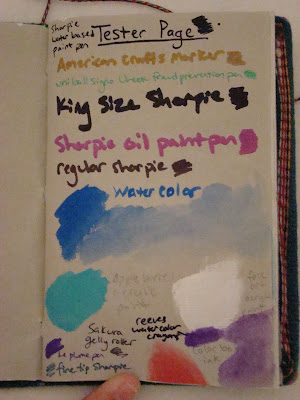 Sharpie
water based
paint pen
Tester Page
American Crafts marker
uniball Signo Check fraud prevention pen
King Size Sharpie
Sharpie oil paint pen
regular sharpie
watercolor
Apple Barrel
acrylic
paint
reeves
watercolor
crayons
Sakura
gelly roller
le plume pen
fine tip Sharpie
ink